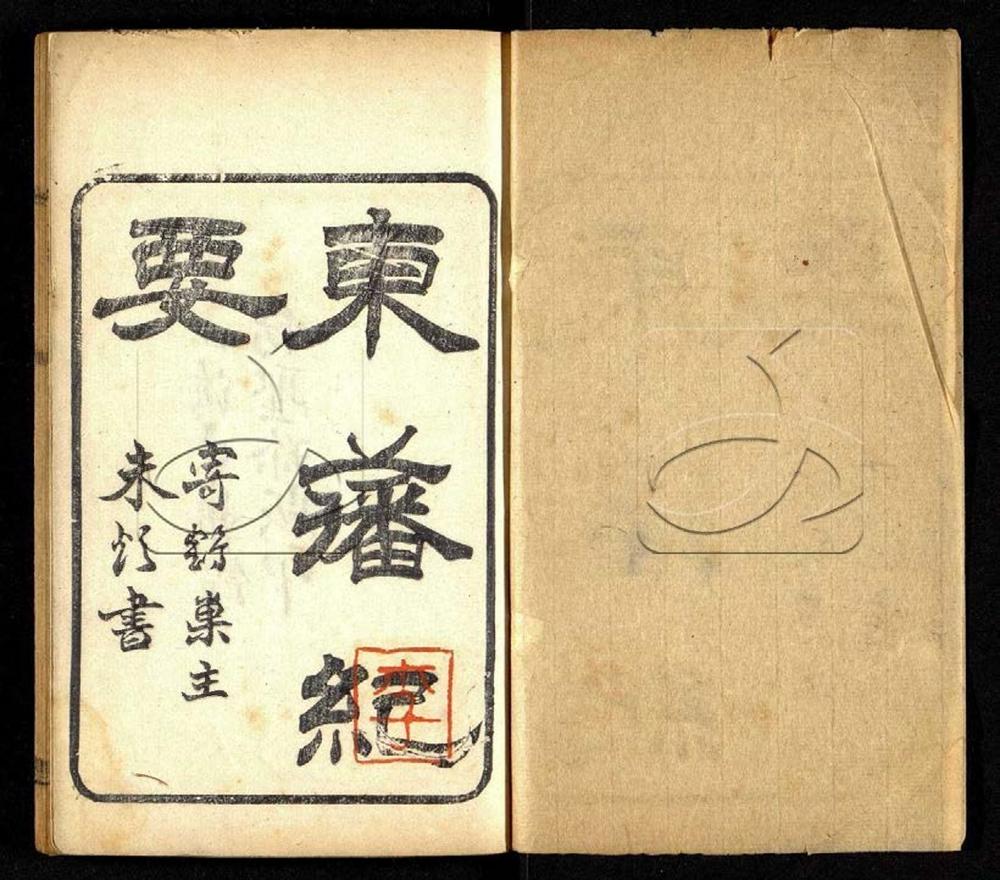 東藩紀
要
寄鶴巢主
朱
書
李